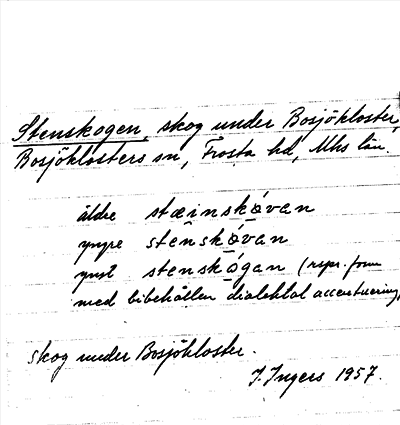 Stenskogen, skog under Bosjökloster,
Bosjöklosters sn, Frosta hd, Mhs län.
äldre stæinskǫ́van
yngre stēnskǫ́van
yngst stenskǫ́gan (rspr. form
med bibehållen dialektal accentuering)
skog under Bosjökloster.
J. Ingers 1957.